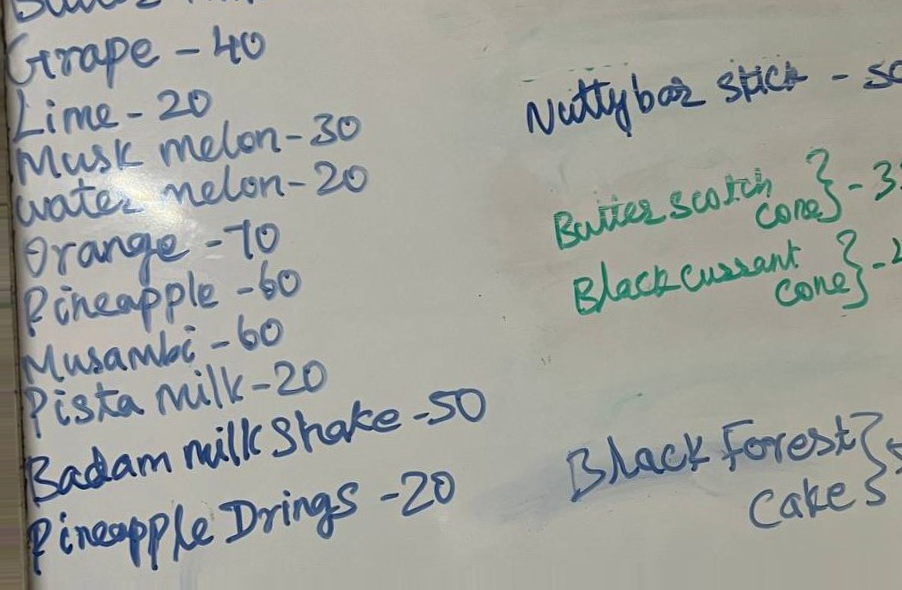 Grape - 40
Lime - 20
Musk melon - 30
water melon - 20
Orange - 70
Pineapple - 60
Musambi - 60
Pista Milk - 20
Badam milk Shake - 50
Pineapple Drings - 20
Nuttybar stick -
Butter scotch
cone} -
Black cussant
cone} -
Black Forest
cake}